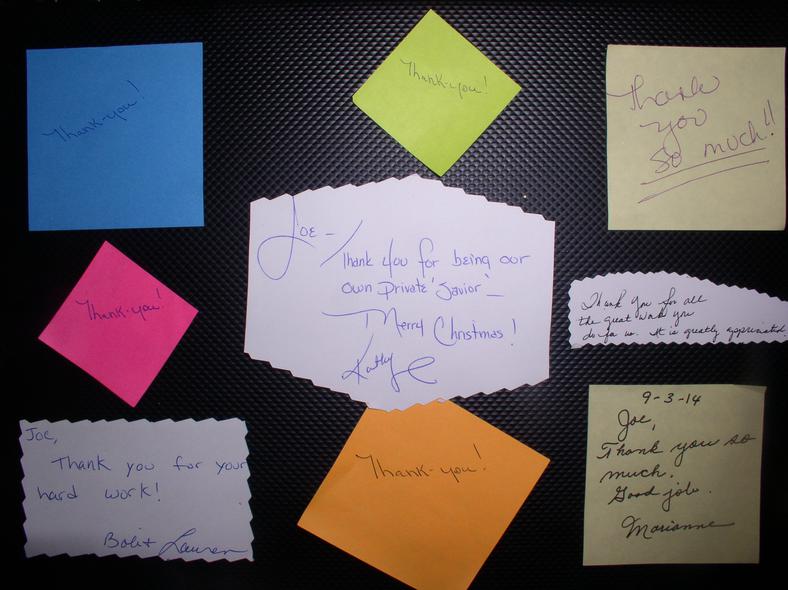 Thank-you!
Thank-you!
Thank
you
so much!!
Joe -
Thank you for being our
own private 'Savior'
Merry Christmas!
Kathy
Thank-you!
Thank you for all
the great work you
do for us. It is greatly appreciated
Joe,
Thank you for your
hard work!
Bob + Lauren
Thank-you!
9-3-14
Joe,
Thank you so
much.
Good job.
Marianne